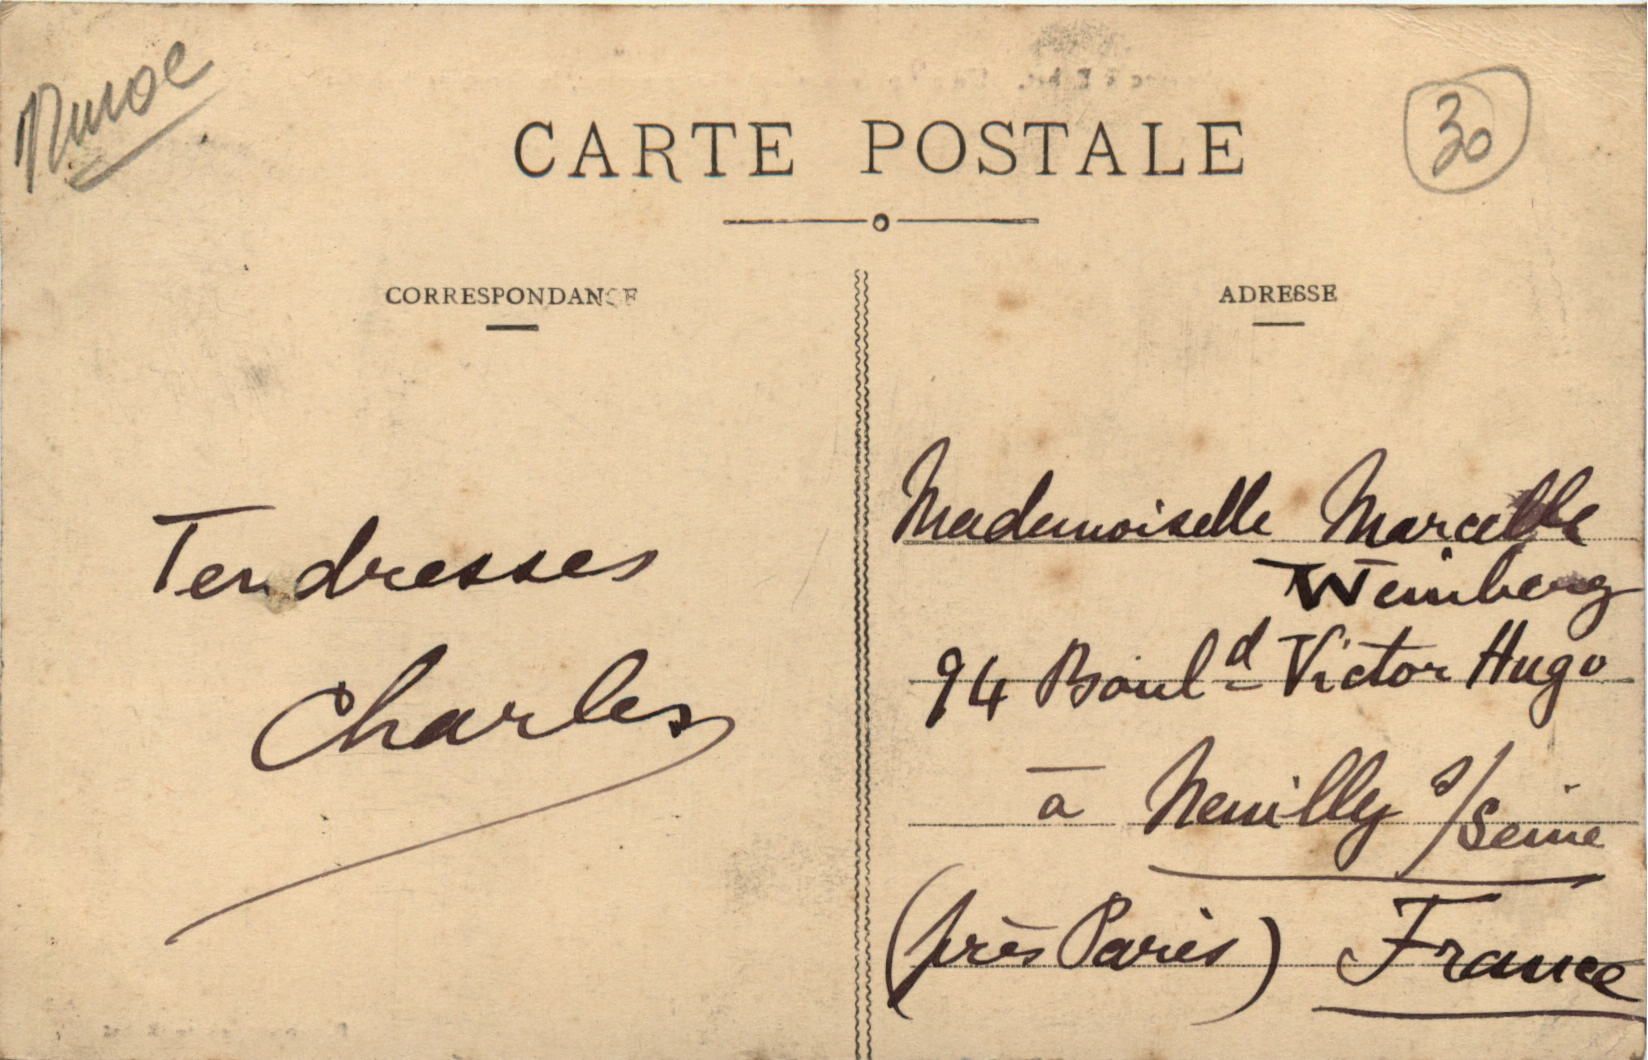 30
CARTE POSTALE
CORRESPONDANCE
ADRESSE
Tendresses
Charles
Mademoiselle Marcelle
Weinberg
94 Boul.d Victor Hugo
à Neuilly s/Seine
(près Paris) France